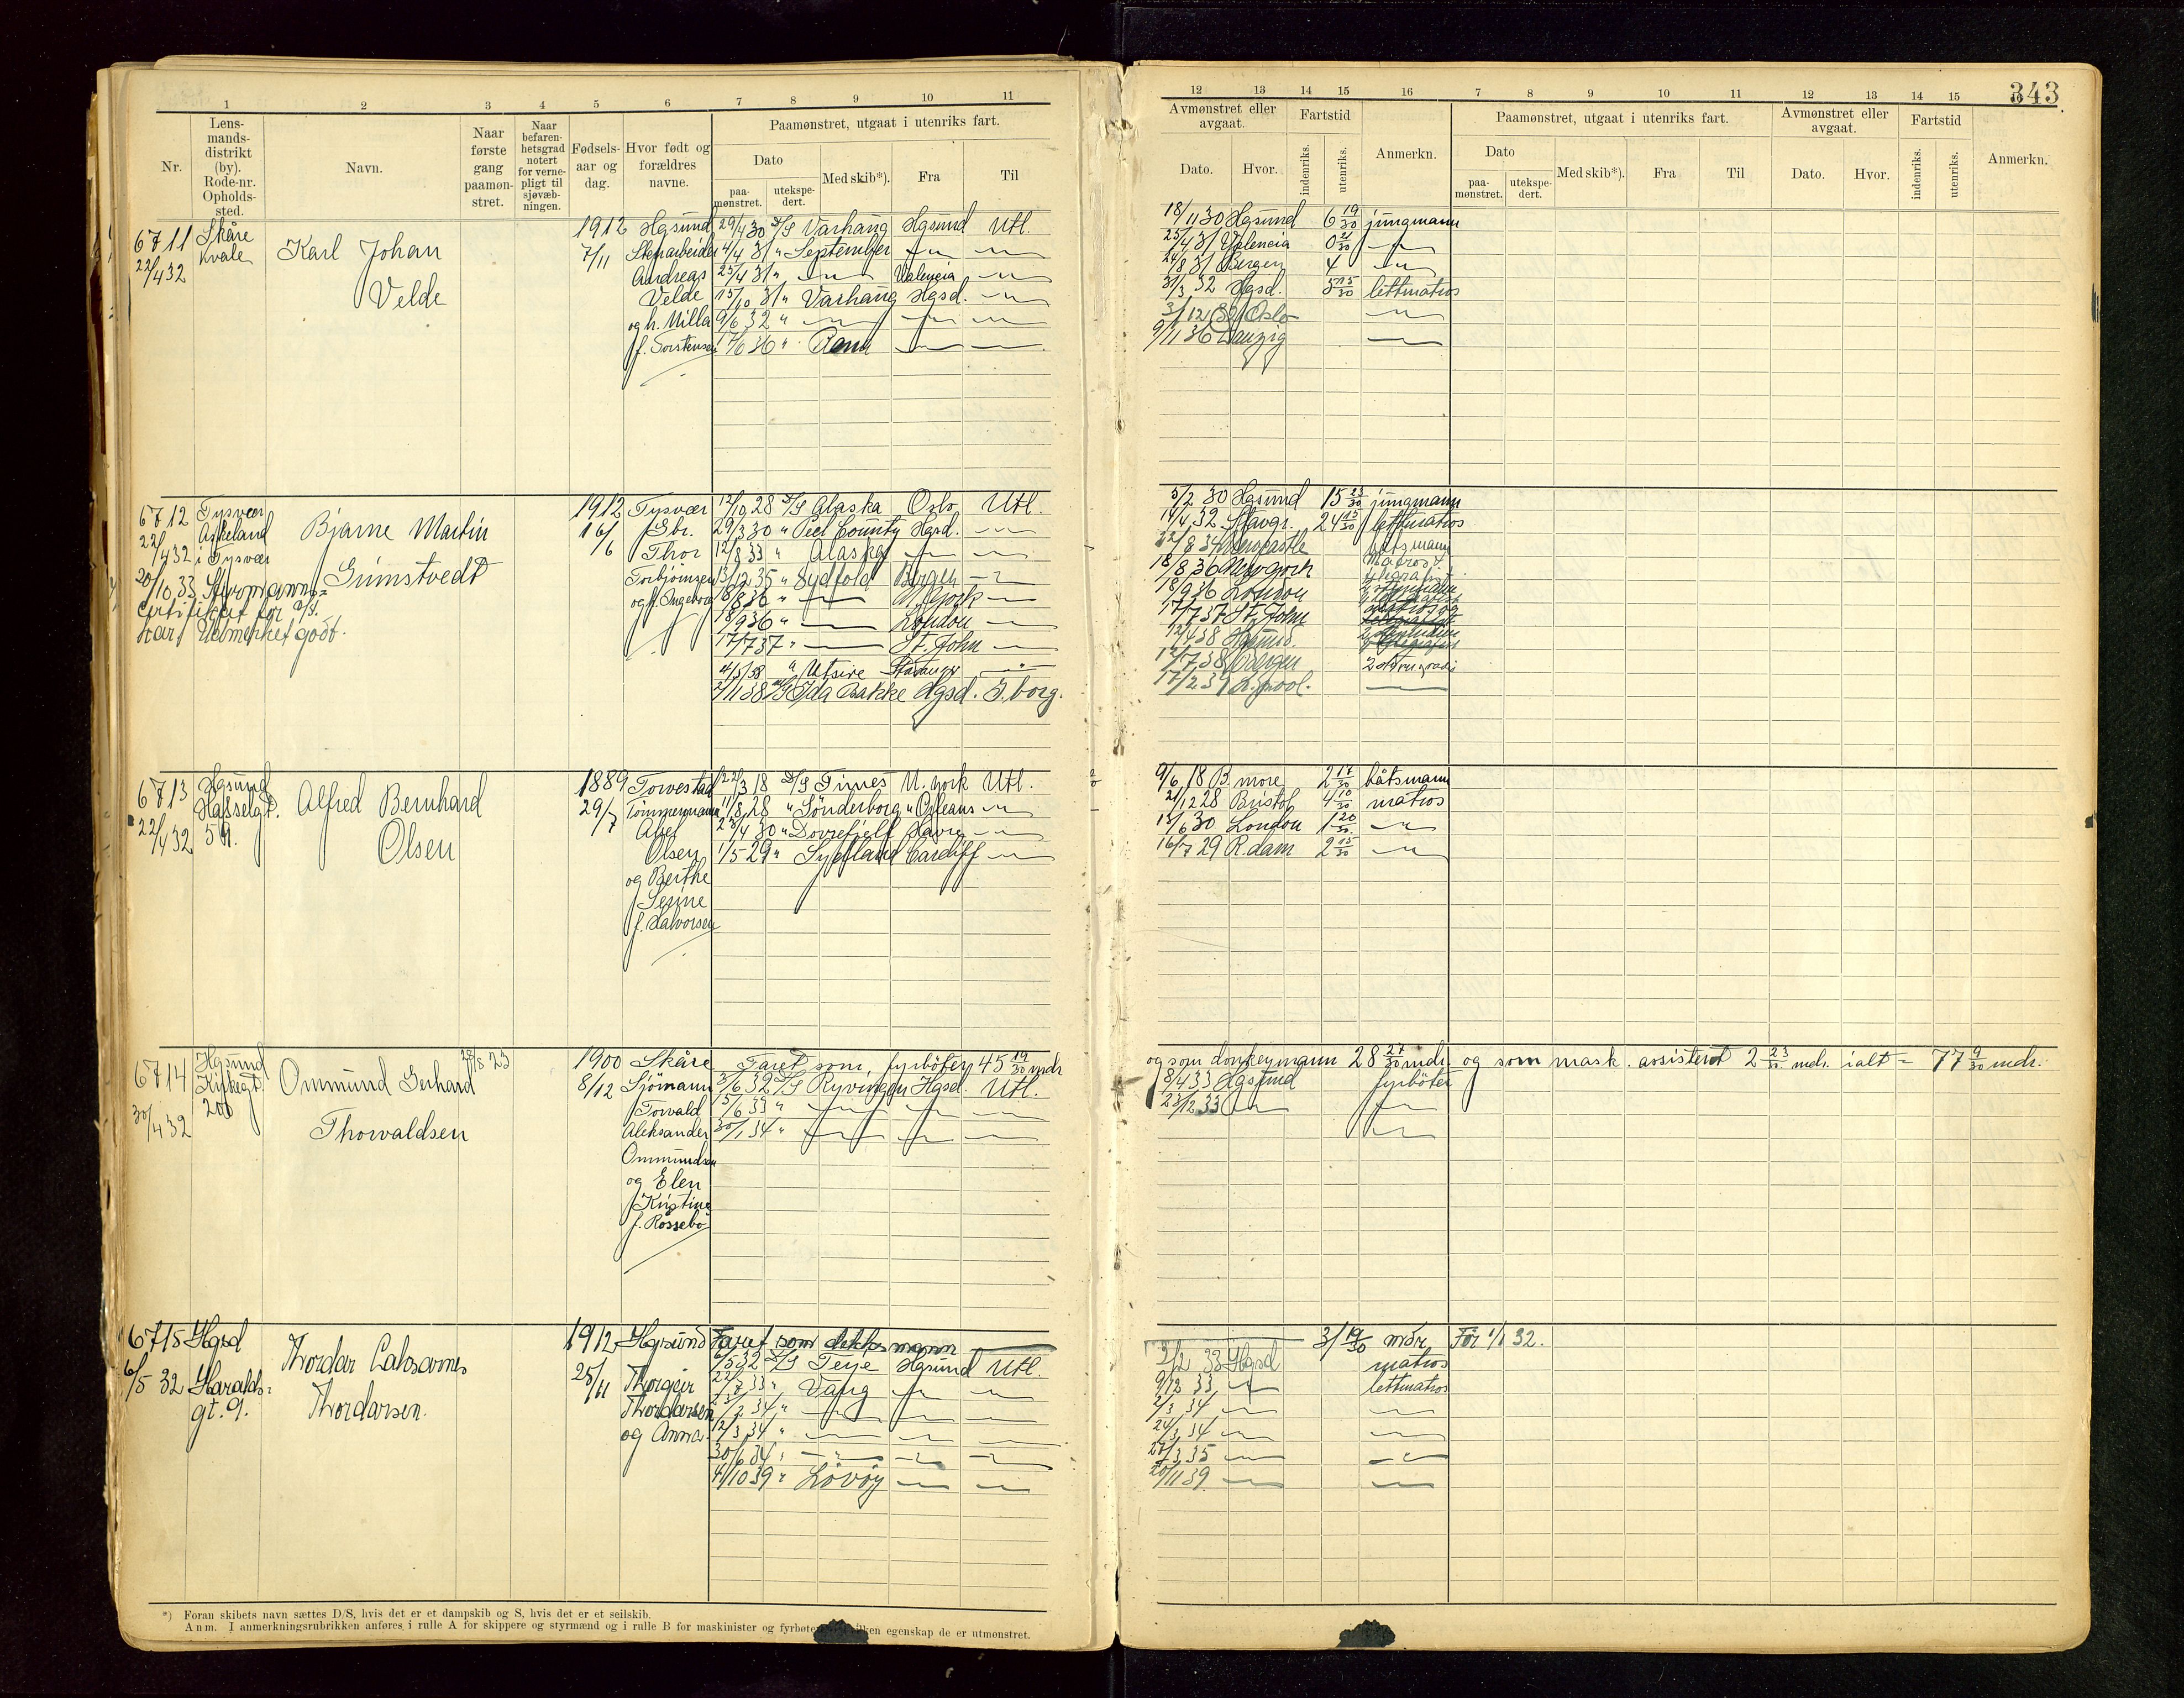 343
1 2 3 4 5 6 7 8 9 10 11
Nr.
Lens-
mands-
distrikt
(by).
Rode-nr.
Opholds-
sted.
Navn.
Naar
første
gang
paamøn-
stret.
Naar
befaren-
hetsgrad
notert
for verne-
pligt til
sjøvæb-
ningen.
Fødsels-
aar og
dag.
Hvor født og
forældres
navne.
Paamønstret, utgaat i utenriks fart.
Dato
paa-
mønstret.
utekspe-
dert.
Med skib*).
Fra
Til
12 13 14 15 16 7 8 9 10 11 12 13 14 15
Avmønstret eller
avgaat.
Dato.
Hvor.
Fartstid
indenriks.
utenriks.
Anmerkn.
Paamønstret, utgaat i utenriks fart.
Dato
paa-
mønstret.
utekspe-
dert.
Med skib*).
Fra
Til
Avmønstret eller
avgaat.
Dato.
Hvor.
Fartstid
indenriks.
utenriks.
Anmerkn.
6711
22/4 32
Skåre
Kvale
Karl Johan
Velde
1912
7/11
Hgsund
Andreas
Velde
og h. Milla
f. Torstensen
29/4 30 D/S Varhaug Hgsund Utl.
4/4 31 " September
25/4 31 " Valencia
15/10 31 " Varhaug Hgsd.
9/6 32 "
18/11 30 Hgsund 6 19/30 jungmann
25/4 31 Valencia 0 21/30
24/8 31 Bergen 4
31/3 32 Hgsd. 5 15/30 lettmatros
3/12 32 Oslo
9/11 36 Danzig
6712
22/4 32
Tysvær
Askeland
i Tysvær
20/10 33 Styrmanns-
certifikat for
kar. Udmerket godt.
Bjarne Martin
Grimstvedt
1912
16/6
Tysvær
Gbr.
Thor
Torbjörnsen
og h. Ingeborg
12/10 28 D/S Alaska Oslo Utl.
29/3 30 " Peel County Hgsd.
12/8 33 " Alaska
13/12 35 " Sydfold Bergen
18/8 36 " N. York
18/9 36 " London
17/7 37 " St. John
" Utsire Stavanger
2/11 38 M/S Ida Bakke Hgsd. G.borg.
5/2 30 Hgsund 15 23/30 jungmann
14/4 32 Stavgr. 24 15/30 lettmatros
22/8 34 Newcastle båtsmann
18/8 36 New York matros
18/9 36 London
17/7 37 St. John
12/4 38 Hgsund.
12/7 38 Bergen
17/2 39 L.pool.
6713
22/4 32
Hgsund
Hasselgt.
59.
Alfred Bernhard
Olsen
1889
29/7
Torvestad
Tömmermann
Abel
Olsen
og Berthe
Serine
f. Halvorsen
22/3 18 D/S Times N. York Utl.
11/8 28 " Sönderborg N. Orleans
23/4 30 " Dovrefjell Havre
1/5 29 " Sydfland Cardiff
9/6 18 B. more 2 17/30 båtsmann
21/12 28 Bristol 4 10/30 matros
13/6 30 London 1 20/30
16/7 29 R.dam 2 15/30
6714
30/4 32
Hgsund
Kirkegt.
206
Ommund Gerhard
Thorvaldsen
28/8 23
1900
8/12
Skåre
Sjömann
Torvald
Aleksander
Ommundsen
og Elen
Kristine
f. Rossebö
Faret som fyrböter 45 19/30 mdr
og som donkeymann 28 27/30 mdr. og som mask. assistent 2 23/30 mdr. ialt = 77 9/30 mdr.
3/6 32 D/S Ryvingen Hgsd. Utl.
15/6 33 "
30/1 34 "
8/4 33 Hgsund fyrböter
23/12 33
6715
6/5 32
Hgsd
Haralds-
gt. 9.
Thordar
Thordarsen.
1912
25/11
Hgsund
Thorgeir
Thordarsen
og Anna
Faret som dekksmann
3/ 19/30 mdr Før 1/1 32.
6/5 32 D/S Teje Hgsund Utl.
22/7 33 " Vang
2/2 34 "
12/3 34 "
30/6 34 "
4/10 39 " Lövöy
3/2 33 Hgsd matros
9/12 33 lettmatros
2/3 34
24/3 34
27/3 35
20/11 39
*) Foran skibets navn sættes D/S, hvis det er et dampskib og S, hvis det er et seilskib.
Anm. I anmerkningsrubrikken anføres i rulle A for skippere og styrmænd og i rulle B for maskinister og fyrbøtere egenskap de er utmønstret.